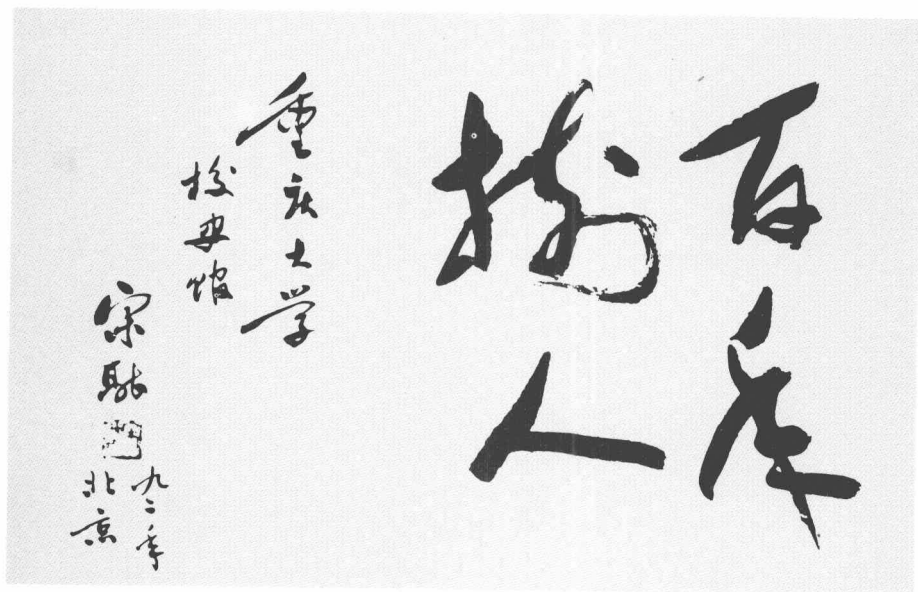 百年
树人
重庆大学
校史馆
宋
九二年
北京